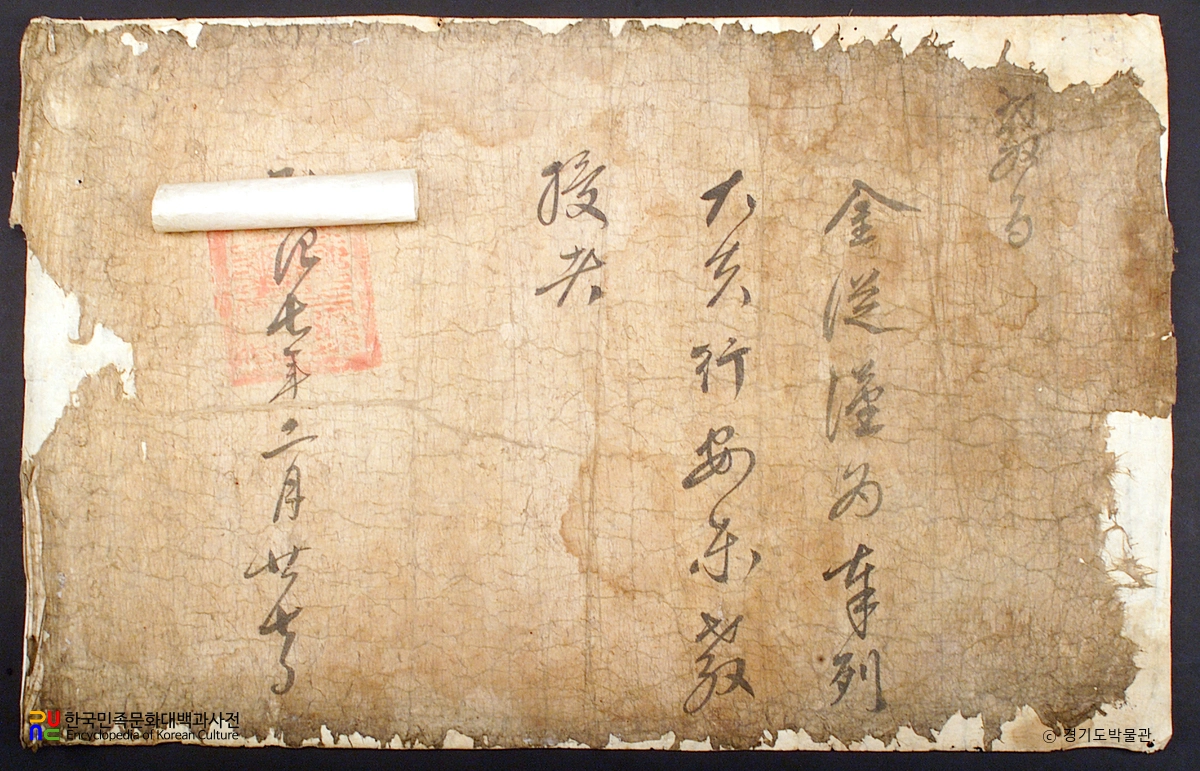 教旨
金從漢為奉列
大夫行安東教
授者
治七年二月廿七日
한국민족문화대백과사전
Encyclopedia of Korean Culture
ⓒ 경기도박물관